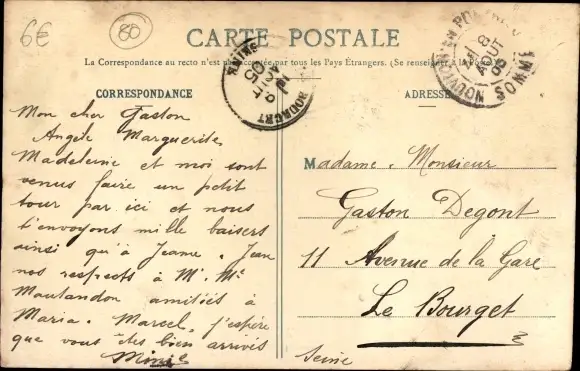 6€
80
CARTE POSTALE
La Correspondance au recto n'est pas acceptée par tous les Pays Étrangers. (Se renseigner à la Poste)
CORRESPONDANCE
ADRESSE
AOUT
SOMME
Mon cher Gaston
Angèle Marguerite
Madeleine et moi sont
venus faire un petit
tour par ici et nous
t'envoyons mille baisers
ainsi qu'à Jeanne. Jean
nos respects à Mr. Me
Moutandon amitiés à
Maria. Marcel, j'espère
que vous êtes bien arrivés
Mimi
Madame. Monsieur
Gaston Degont
11 Avenue de la Gare
Le Bourget
Seine